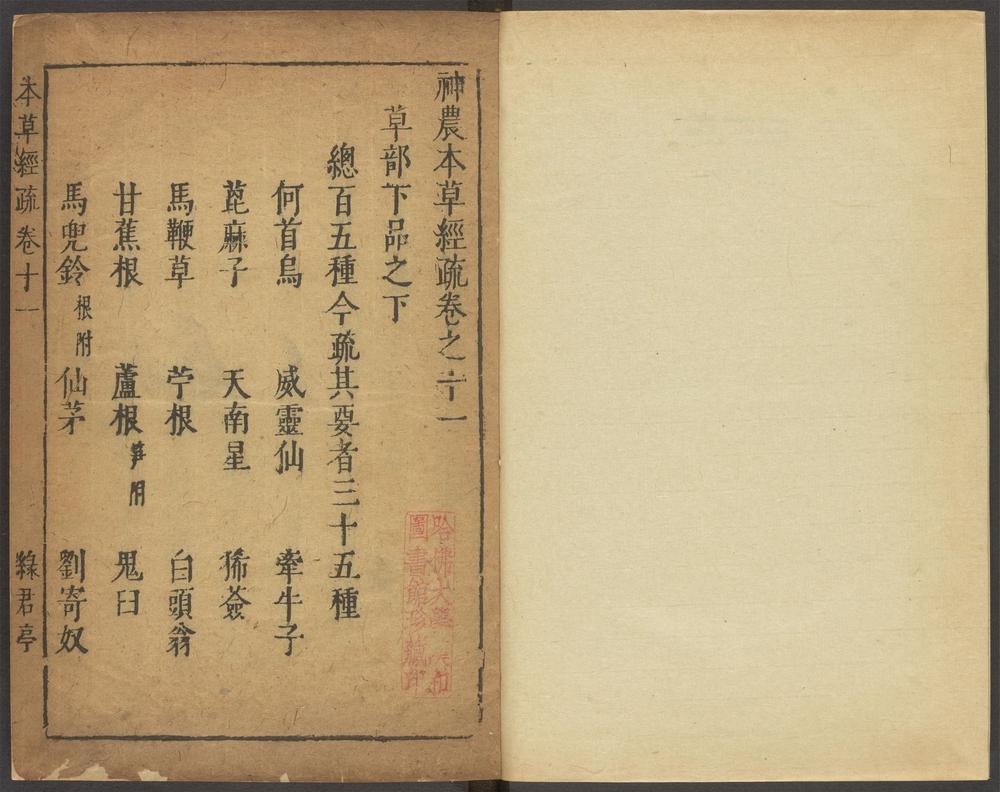 神農本草經疏卷之十一
草部下品之下
總百五種今疏其要者三十五種
何首烏 威靈仙 牽牛子
萞麻子 天南星 豨薟
馬鞭草 苧根 白頭翁
甘蕉根 蘆根 笋附 鬼臼
馬兜鈴 根附 仙茅 劉寄奴
本草經疏卷十一 綠君亭
哈佛大學
圖書館珍藏印